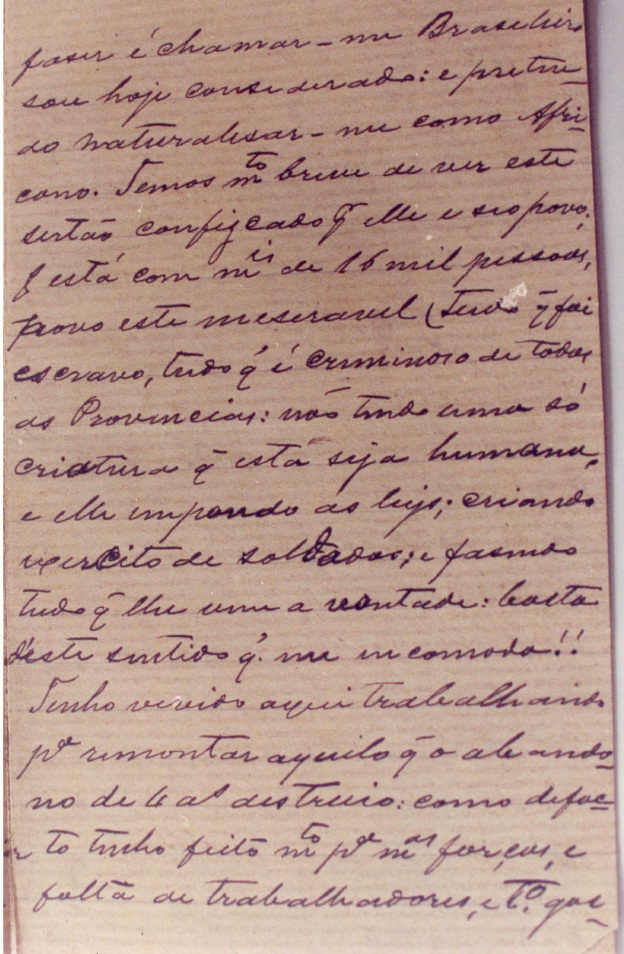 faser é chamar-me Brasileiro
sou hoje considerado: e preten-
do naturalisar-me como Afri-
cano. Temos mto breve de ver este
sertão confiscado pr elle e seo povo;
q está com mis de 16 mil pessoas,
povo este meseravel (tudo q̃ foi
escravo, tudo q̃ é criminoso de todas
as Provincias: não tendo uma só
criatura q̃ está seja humana,
e elle impondo as leys; criando
exercito de soldados; e fasendo
tudo q̃ lhe vem a vontade: basta
d'este sentido q̃. me incomoda!!
Tenho vivido aqui trabalhando
pa remontar aquilo q̃ o abando-
no de 4 as destruio: como defac-
to tenho feito mto pa mas forças, e
falta de trabalhadores, e to. gas-